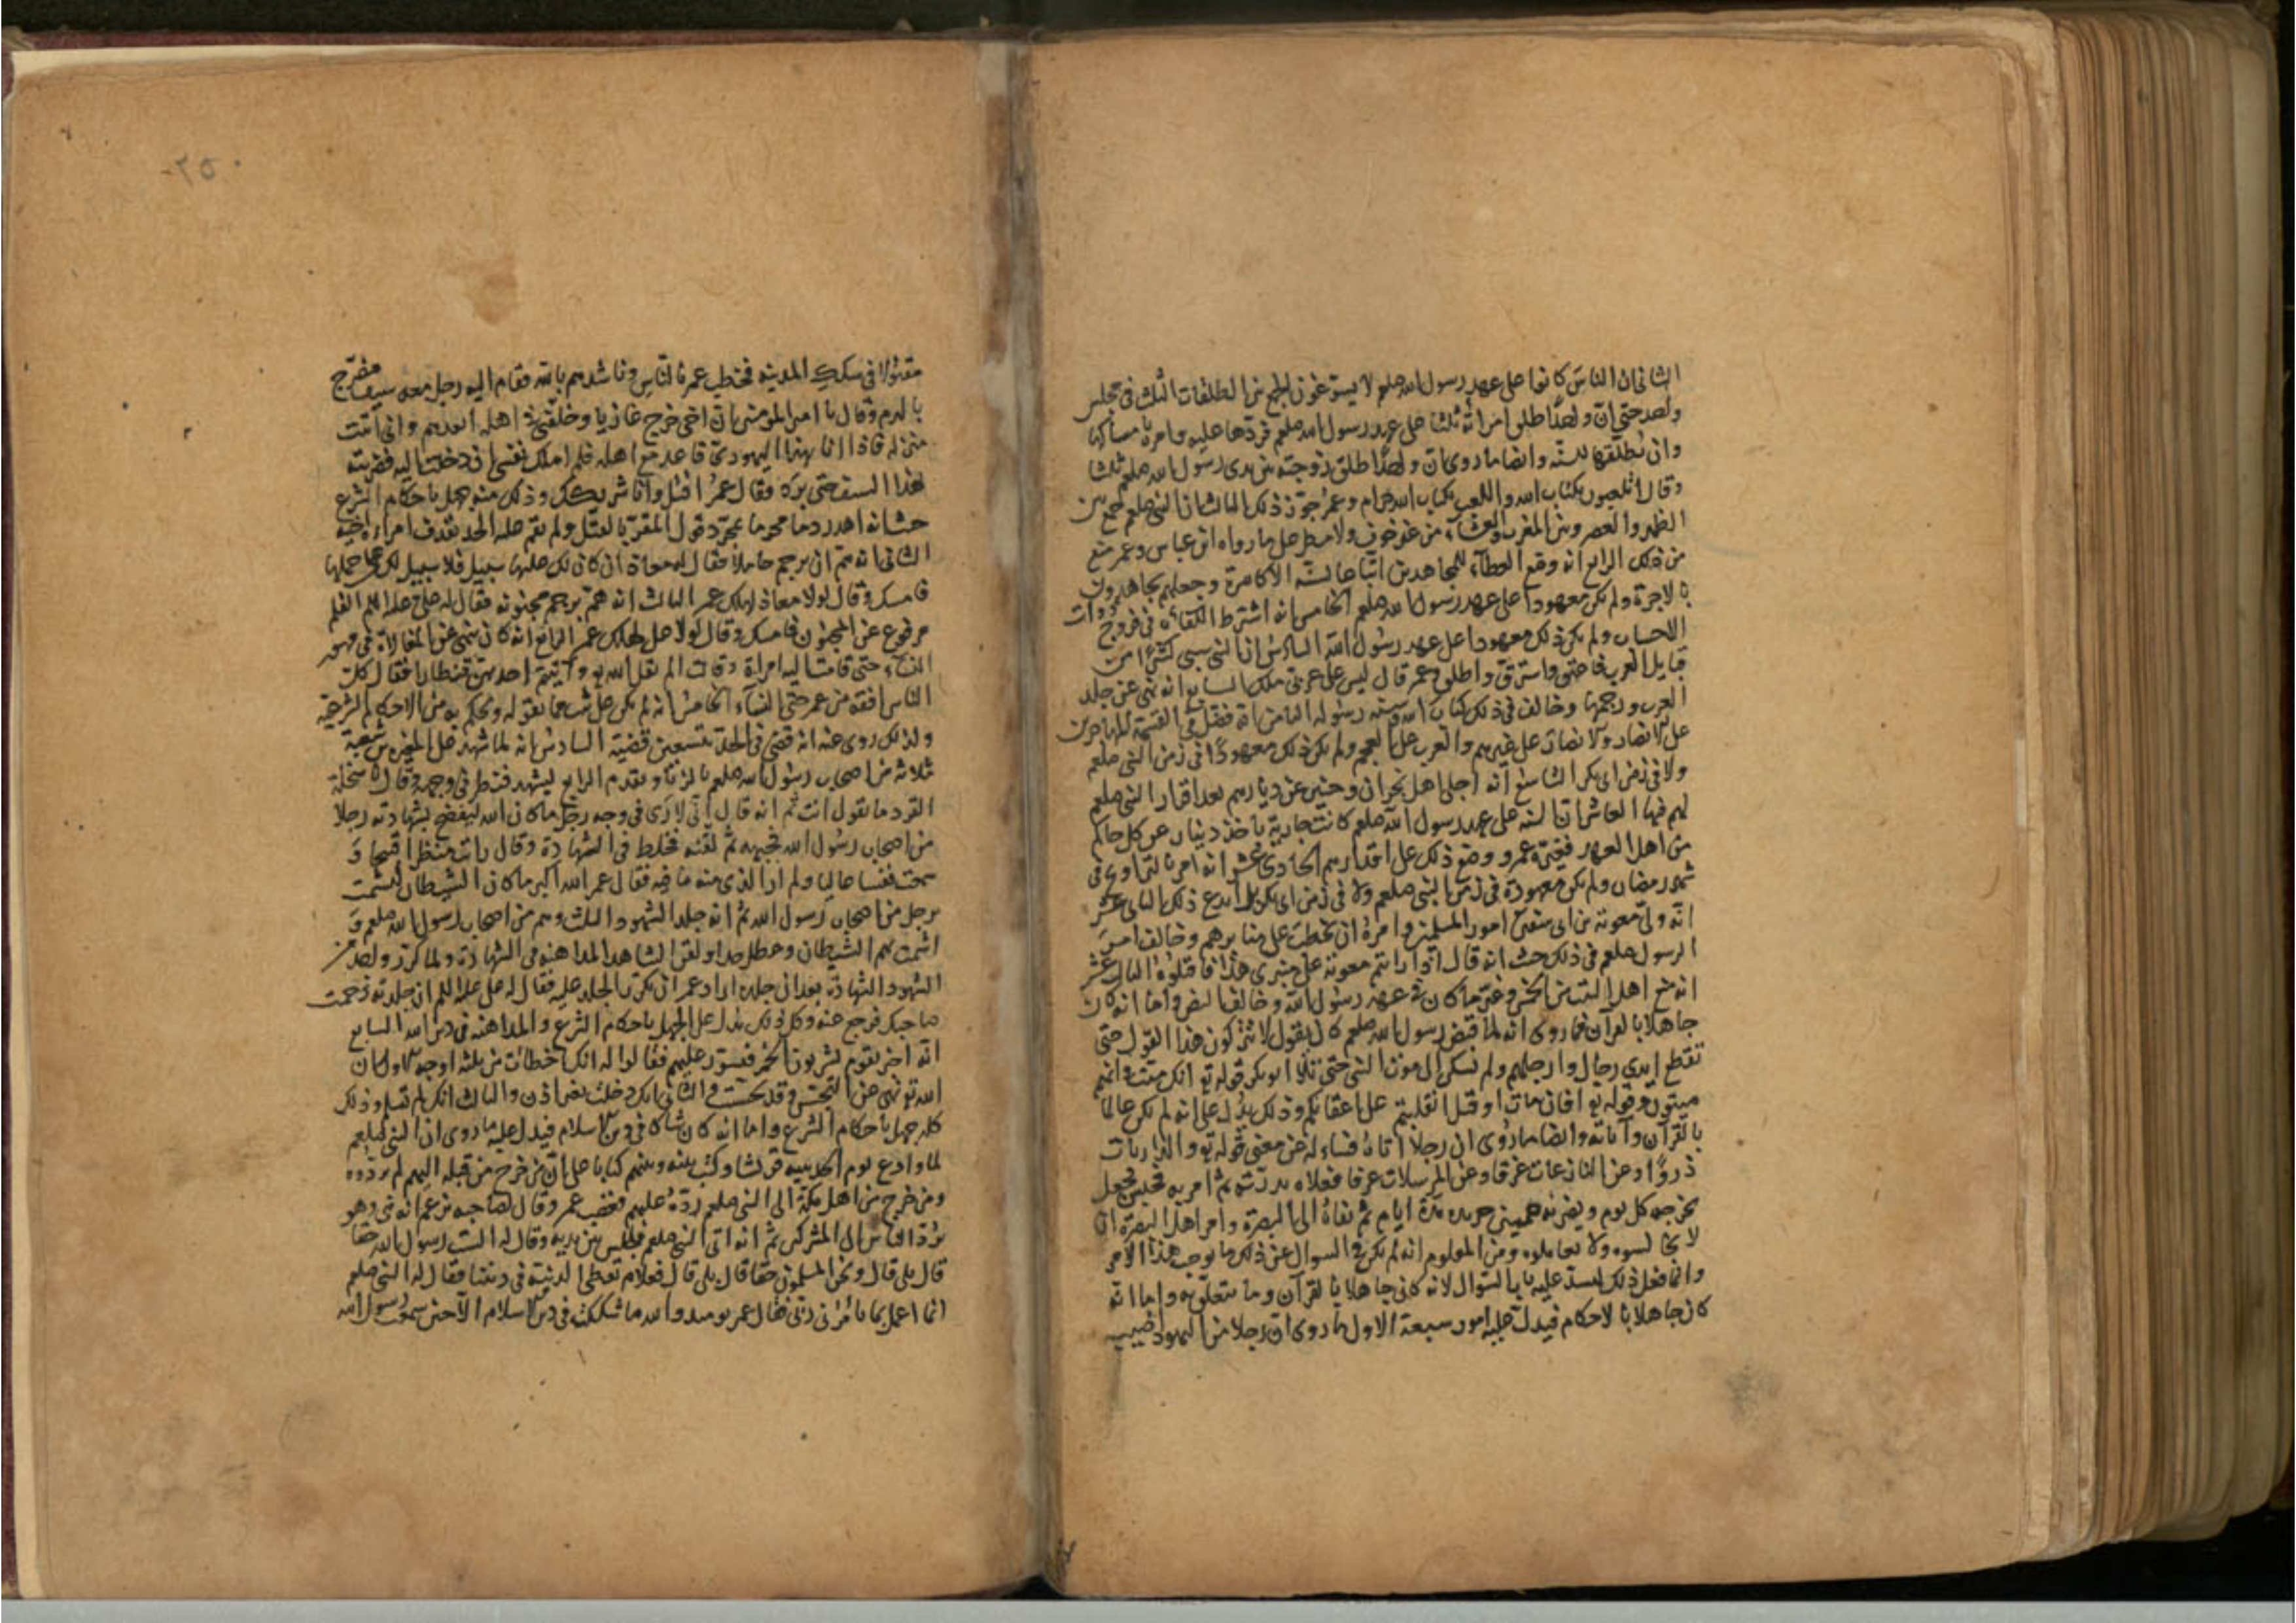 الثانى ان الناس كانوا على عهد رسول الله صلعم لا يسوّغون الجمع بين الطلقات الثلث فى مجلس
واحد حتى ان واحدًا طلق امراته ثلثا على عهد رسول الله صلعم فردّها عليه وامره بامساكها
وان يطلّقها للسنّه وايضا ما روى ان واحدًا طلق زوجته بين يدى رسول الله صلعم ثلثا
وقال اتلعبون بكتاب الله واللعب بكتاب الله حرام وعمر جوّز ذلك الثالث ان النبى صلعم جمع بين
الظهر والعصر وبين المغرب والعشآء من غير خوف ولا مطر على ما رواه ابن عباس وعمر منع
من ذلك الرابع انه وضع العطآء للمجاهدين اتباعا لسنّه الاكاسرة وجعلهم يجاهدون
بالاجرة ولم يكن معهودا على عهد رسول الله صلعم الخامس انه اشترط الكفاءه فى فروج ذوات
الاحساب ولم يكن ذلك معهودا على عهد رسول الله السادس ان النبى سبى كثيرًا من
قبايل العرب فاعتق واسترق واطلق وعمر قال ليس على عربى ملك السابع انه نهى عن جلد
العرب ورجمها وخالف فى ذلك كتاب الله وسنّه رسوله الثامن انه فضّل فى القسمة المهاجرين
على الانصار والانصار على غيرهم والعرب على العجم ولم يكن ذلك معهودًا فى زمن النبى صلعم
ولا فى زمن ابى بكر التاسع انه اجلى اهل نجران وخيبر عن ديارهم بعد اقرار النبى صلعم
لهم فيها العاشر ان السنه على عهد رسول الله صلعم كانت جارية باخذ دينار عن كل حالم
من اهل العهد فغيّره عمر ووضع ذلك على اقدارهم الحادى عشر انه امر بالتراويح فى
شهر رمضان ولم يكن معهودة فى زمن النبى صلعم ولا فى زمن ابى بكر بل ابدع ذلك الثانى عشر
انّه ولّى معوية بن ابى سفين امور المسلمين وامرهُ ان يخطب على منابرهم وخالف امر
الرسول صلعم فى ذلك حيث انه قال اذا رايتم معوية على منبرى هذا فاقتلوهُ الثالث عشر
انه منع اهل البيت من الخمس وغيّر ما كان فى عهد رسول الله وخالف النص واما انه كان
جاهلا بالقرآن فما روى انه لما قبض رسول الله صلعم كان يقول لا تتركون هذا القول حتى
تقطع ايدى رجال وارجلهم ولم يسكن الى موت النبى حتى تلا ابو بكر قوله تع انك ميّت وانهم
ميتون وقوله تع افان مات او قتل انقلبتم على اعقابكم وذلك يدلّ على انه لم يكن عالما
بالقرآن وآياته وايضا ما روى ان رجلا اتاه فساله عن معنى قوله تع والذاريات
ذروًا وعن النازعات غرقا وعن المرسلات عرفا فعلاه بدرّته ثم امر به فحبس فجعل
يخرجه كل يوم ويضربه خمسين جريده مدّة ايام ثم نفاهُ الى البصرة وامر اهل البصرة ان
لا يجالسوه ولا يعاملوه ومن المعلوم انه لم يكن فى السوال عن ذلك ما يوجب هذا الامر
وانما فعل ذلك ليسدّ عليه باب السّوال لانه كان جاهلا بالقرآن وما يتعلّق به واما انّه
كان جاهلا بالاحكام فيدلّ عليه امور سبعة الاول ما روى ان رجلا من اليهود اصيب
٢٥٠
مقتولا فى سكك المدينه فخطب عمر بالنّاس وناشدهم بالله فقام اليه رجل معه سيف مضرّج
بالدم وقال يا امير المومنين ان اخى خرج غازيا وخلّفنى فى اهله اتعهدهم وانى اتيت
منزله فاذا انا بهذا اليهودى قاعد مع اهله فلم املك نفسى ان دخلت اليه فضربته
بهذا السيف حتى برد فقال عمر اقتل وانا شريكك وذلك منه جهل باحكام الشرع
حيث انه اهدر دما محرما بمجرّد قول المقرّ بالقتل ولم يقم عليه الحد بقذف امراءه اخيه
الثانى انه همّ ان يرجم حاملا فقال له معاذ ان كان لك عليها سبيل فلا سبيل لك على حملها
فامسك وقال لولا معاذ لهلك عمر الثالث انه همّ برجم مجنونه فقال له على عليه السلم القلم
مرفوع عن المجنون فامسك وقال لولا على لهلك عمر الرابع انه كان ينهى عن المغالاة فى مهور
النسآء حتى قامت اليه امراة وقالت الم يقل الله تع وآتيتم احديهنّ قنطارا فقال كلّ
الناس افقه من عمر حتى النسآء الخامس انه لم يكن على ثبت مما يقوله ويحكم به من الاحكام الشرعيّه
ولذلك روى عنه انه قضى فى الجدّ بتسعين قضيّة السادس انه لما شهد على المغيره بن شعبة
ثلاثه من اصحاب رسول الله صلعم بالزنا وتقدم الرابع ليشهد فنظر فى وجهه وقال
القرد ما تقول انت ثم انه قال انّى لارى فى وجه رجل ما كان الله ليفضح بشهادته رجلا
من اصحاب رسول الله فجبهه ثمّ لقّنه فخلط فى الشهادة وقال رايت منظرا قبيحا و
سمعت نفسا عاليا ولم ار الذى منه ما فيه فقال عمر الله اكبر ما كان الشيطان ليشمت
برجل من اصحاب رسول الله ثم انه جلد الشهود الثلث وهم من اصحاب رسول الله صلعم و
اشمت بهم الشيطان وعطل حدا ولقن الشاهد المداهنه فى الشهادة ولما كرّر واحد من
الشهود الشهادة بعد ان جلده اراد عمر ان يكرّر الجلد عليه فقال له على عليه السلم ان جلدته رجمت
صاحبك فرجع عنه وكل ذلك يدل على الجهل باحكام الشرع والمداهنه فى دين الله السابع
انّه اخبر بقوم يشربون الخمر فتسوّر عليهم فقالوا له انك اخطات من ثلثه اوجه الاول ان
الله تع نهى عن التجسّس وقد تجسّست والثانى انك دخلت بغير اذن والثالث انك لم تسلم وذلك
كله جهل باحكام الشرع واما انه كان شاكا فى دين الاسلام فيدل عليه ما روى ان النبى صلعم
لما وادع يوم الحديبيه قريشا وكتب بينه وبينهم كتابا على ان من خرج من قبله اليهم لم يردّوه
ومن خرج من اهل مكة الى النبى صلعم ردّهُ عليهم فغضب عمر وقال لصاحبه يزعم انه نبى وهو
يردّ الناس الى المشركين ثمّ انه اتى النبى صلعم فجلس بين يديه وقال له الست رسول الله حقا
قال بلى قال ونحن المسلمون حقا قال بلى قال فعلام نعطى الدنيّه فى ديننا فقال له النبى صلعم
انما اعمل بما يامُرنى ربّى فقال عمر يومئذ والله ما شككت فى دين الاسلام الا حين سمعت رسول الله